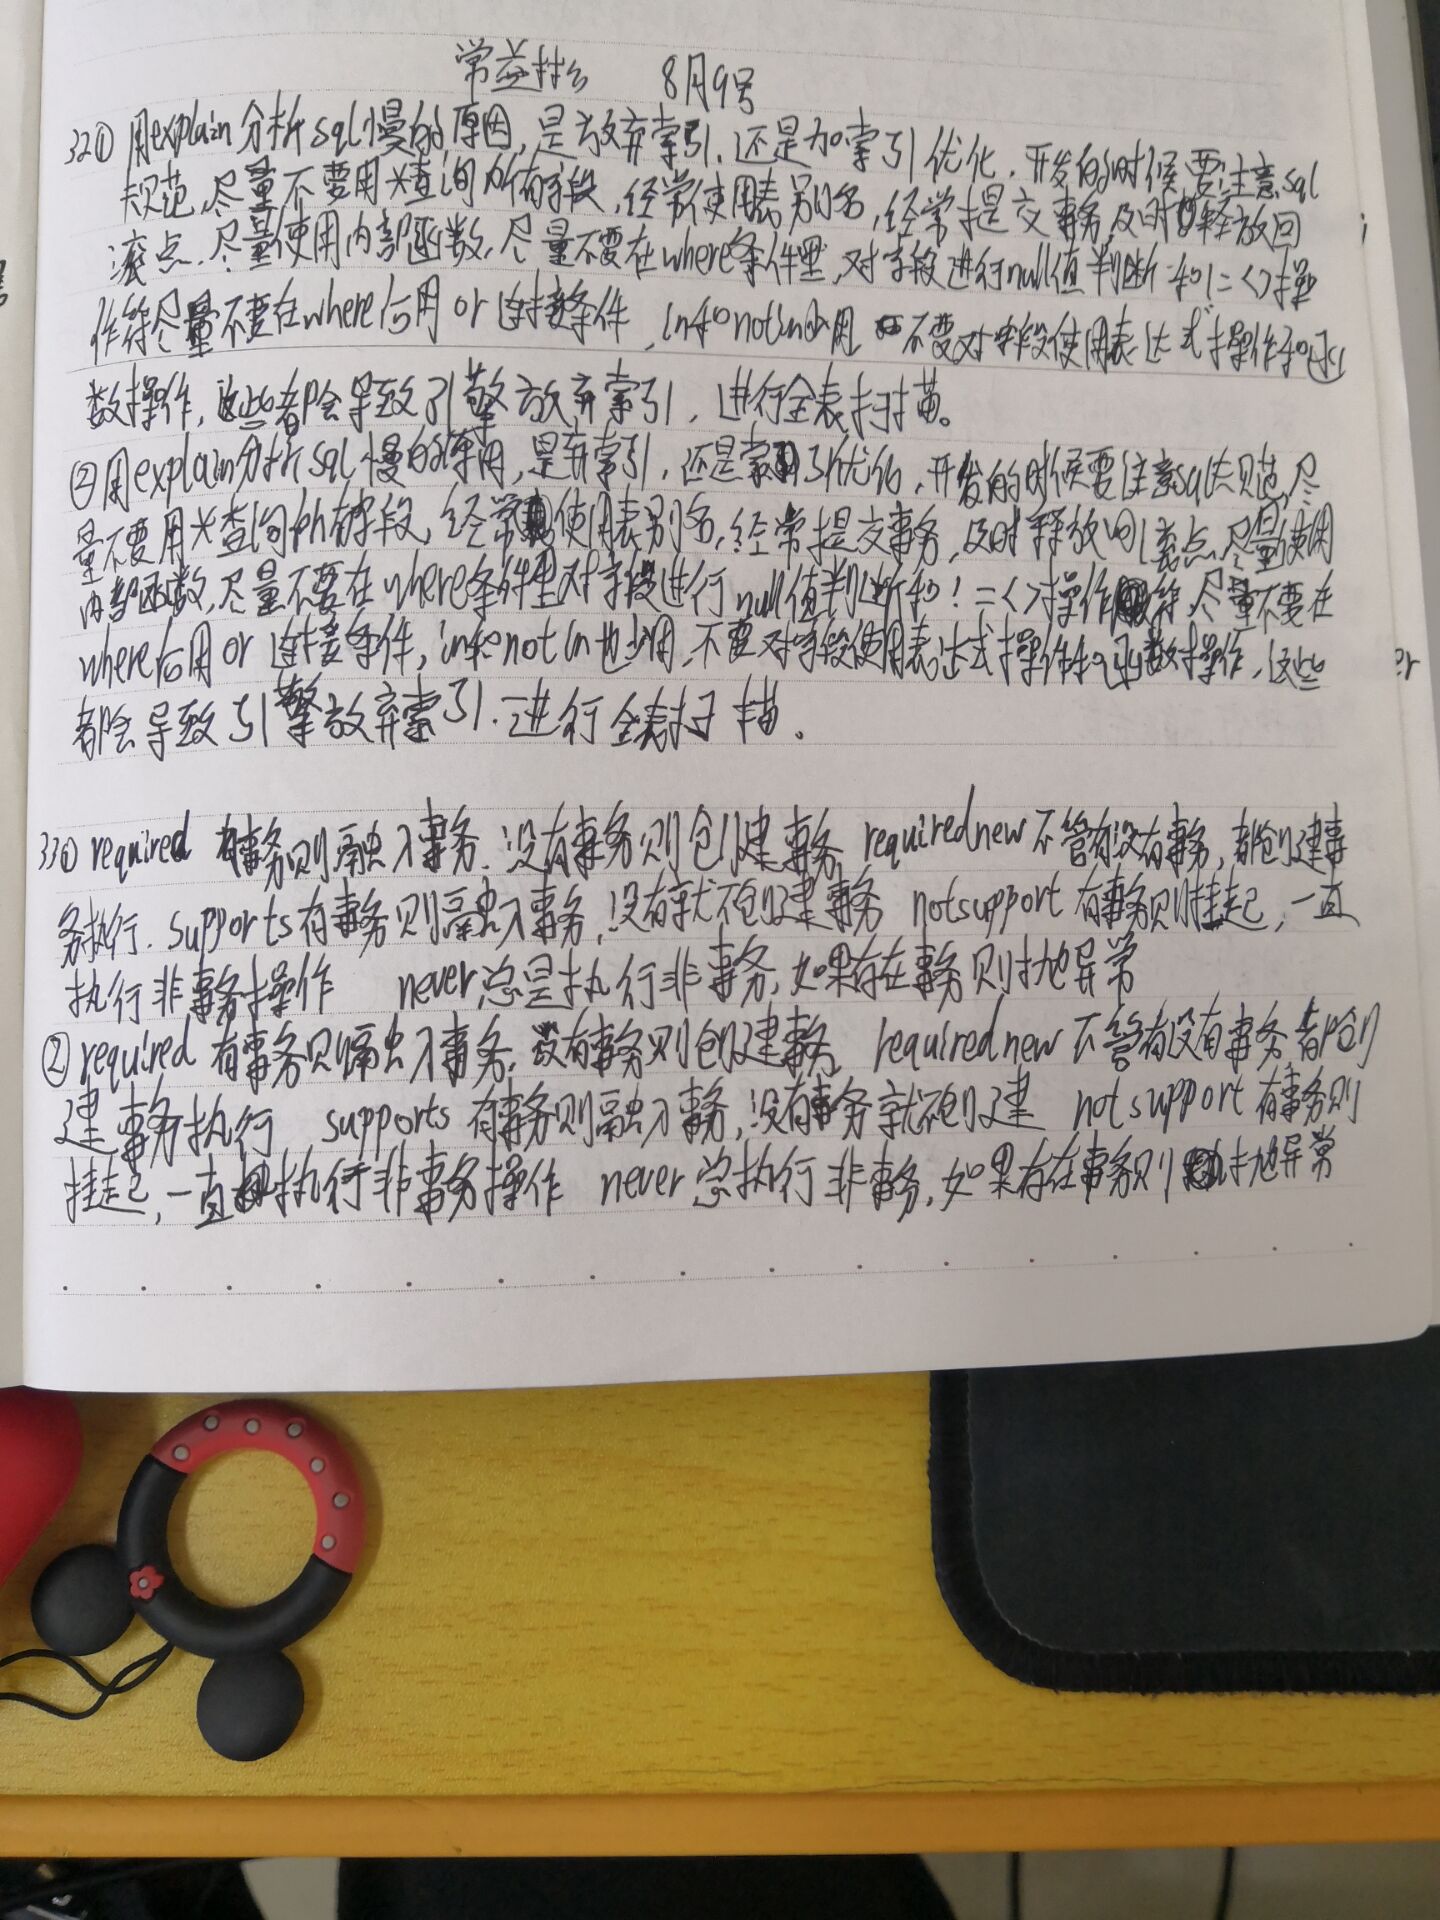 8月9号
32① 用explain分析sql慢的原因,是放弃索引,还是加索引优化,开发的时候要注意sql
规范,尽量不要用*查询所有字段,经常使用表别名,经常提交事务,及时释放回
滚点,尽量使用内部函数,尽量不要在where条件里,对字段进行null值判断和!=<>操
作符尽量不要在where后用or连接条件,in和not in少用 不要对字段使用表达式操作和函
数操作,这些都会导致引擎放弃索引,进行全表扫描。
②用explain分析sql慢的,是弃索引,还是索引优化,开发的时候要注意sql规范,尽
量不要用*查询所有字段,经常使用表别名,经常提交事务,及时释放回滚点,尽量使用
内部函数,尽量不要在where条件里对字段进行null值判断和!=<>操作符,尽量不要在
where后用or连接条件,in和not in也少用,不要对字段使用表达式操作和函数操作,这些
都会导致引擎放弃索引,进行全表扫描。
33① required 有事务则融入事务,没有事务则创建事务 requirednew不管有没有事务,都创建事
务执行. supports有事务则融入事务,没有就不创建事务 notsupport有事务则挂起,一直
执行非事务操作 never总是执行非事务,如果存在事务则抛异常
②required有事务则融入事务,没有事务则创建事务, requirednew不管有没有事务都创
建事务执行 supports有事务则融入事务,没有事务就不创建 notsupport有事务则
挂起,一直执行非事务操作 never总执行非事务,如果存在事务则抛异常
er